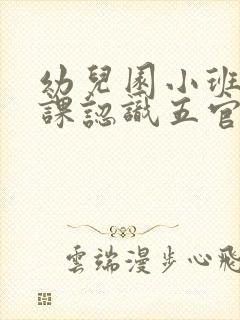 幼兒園小班
課認識五官
雲端漫步心飛